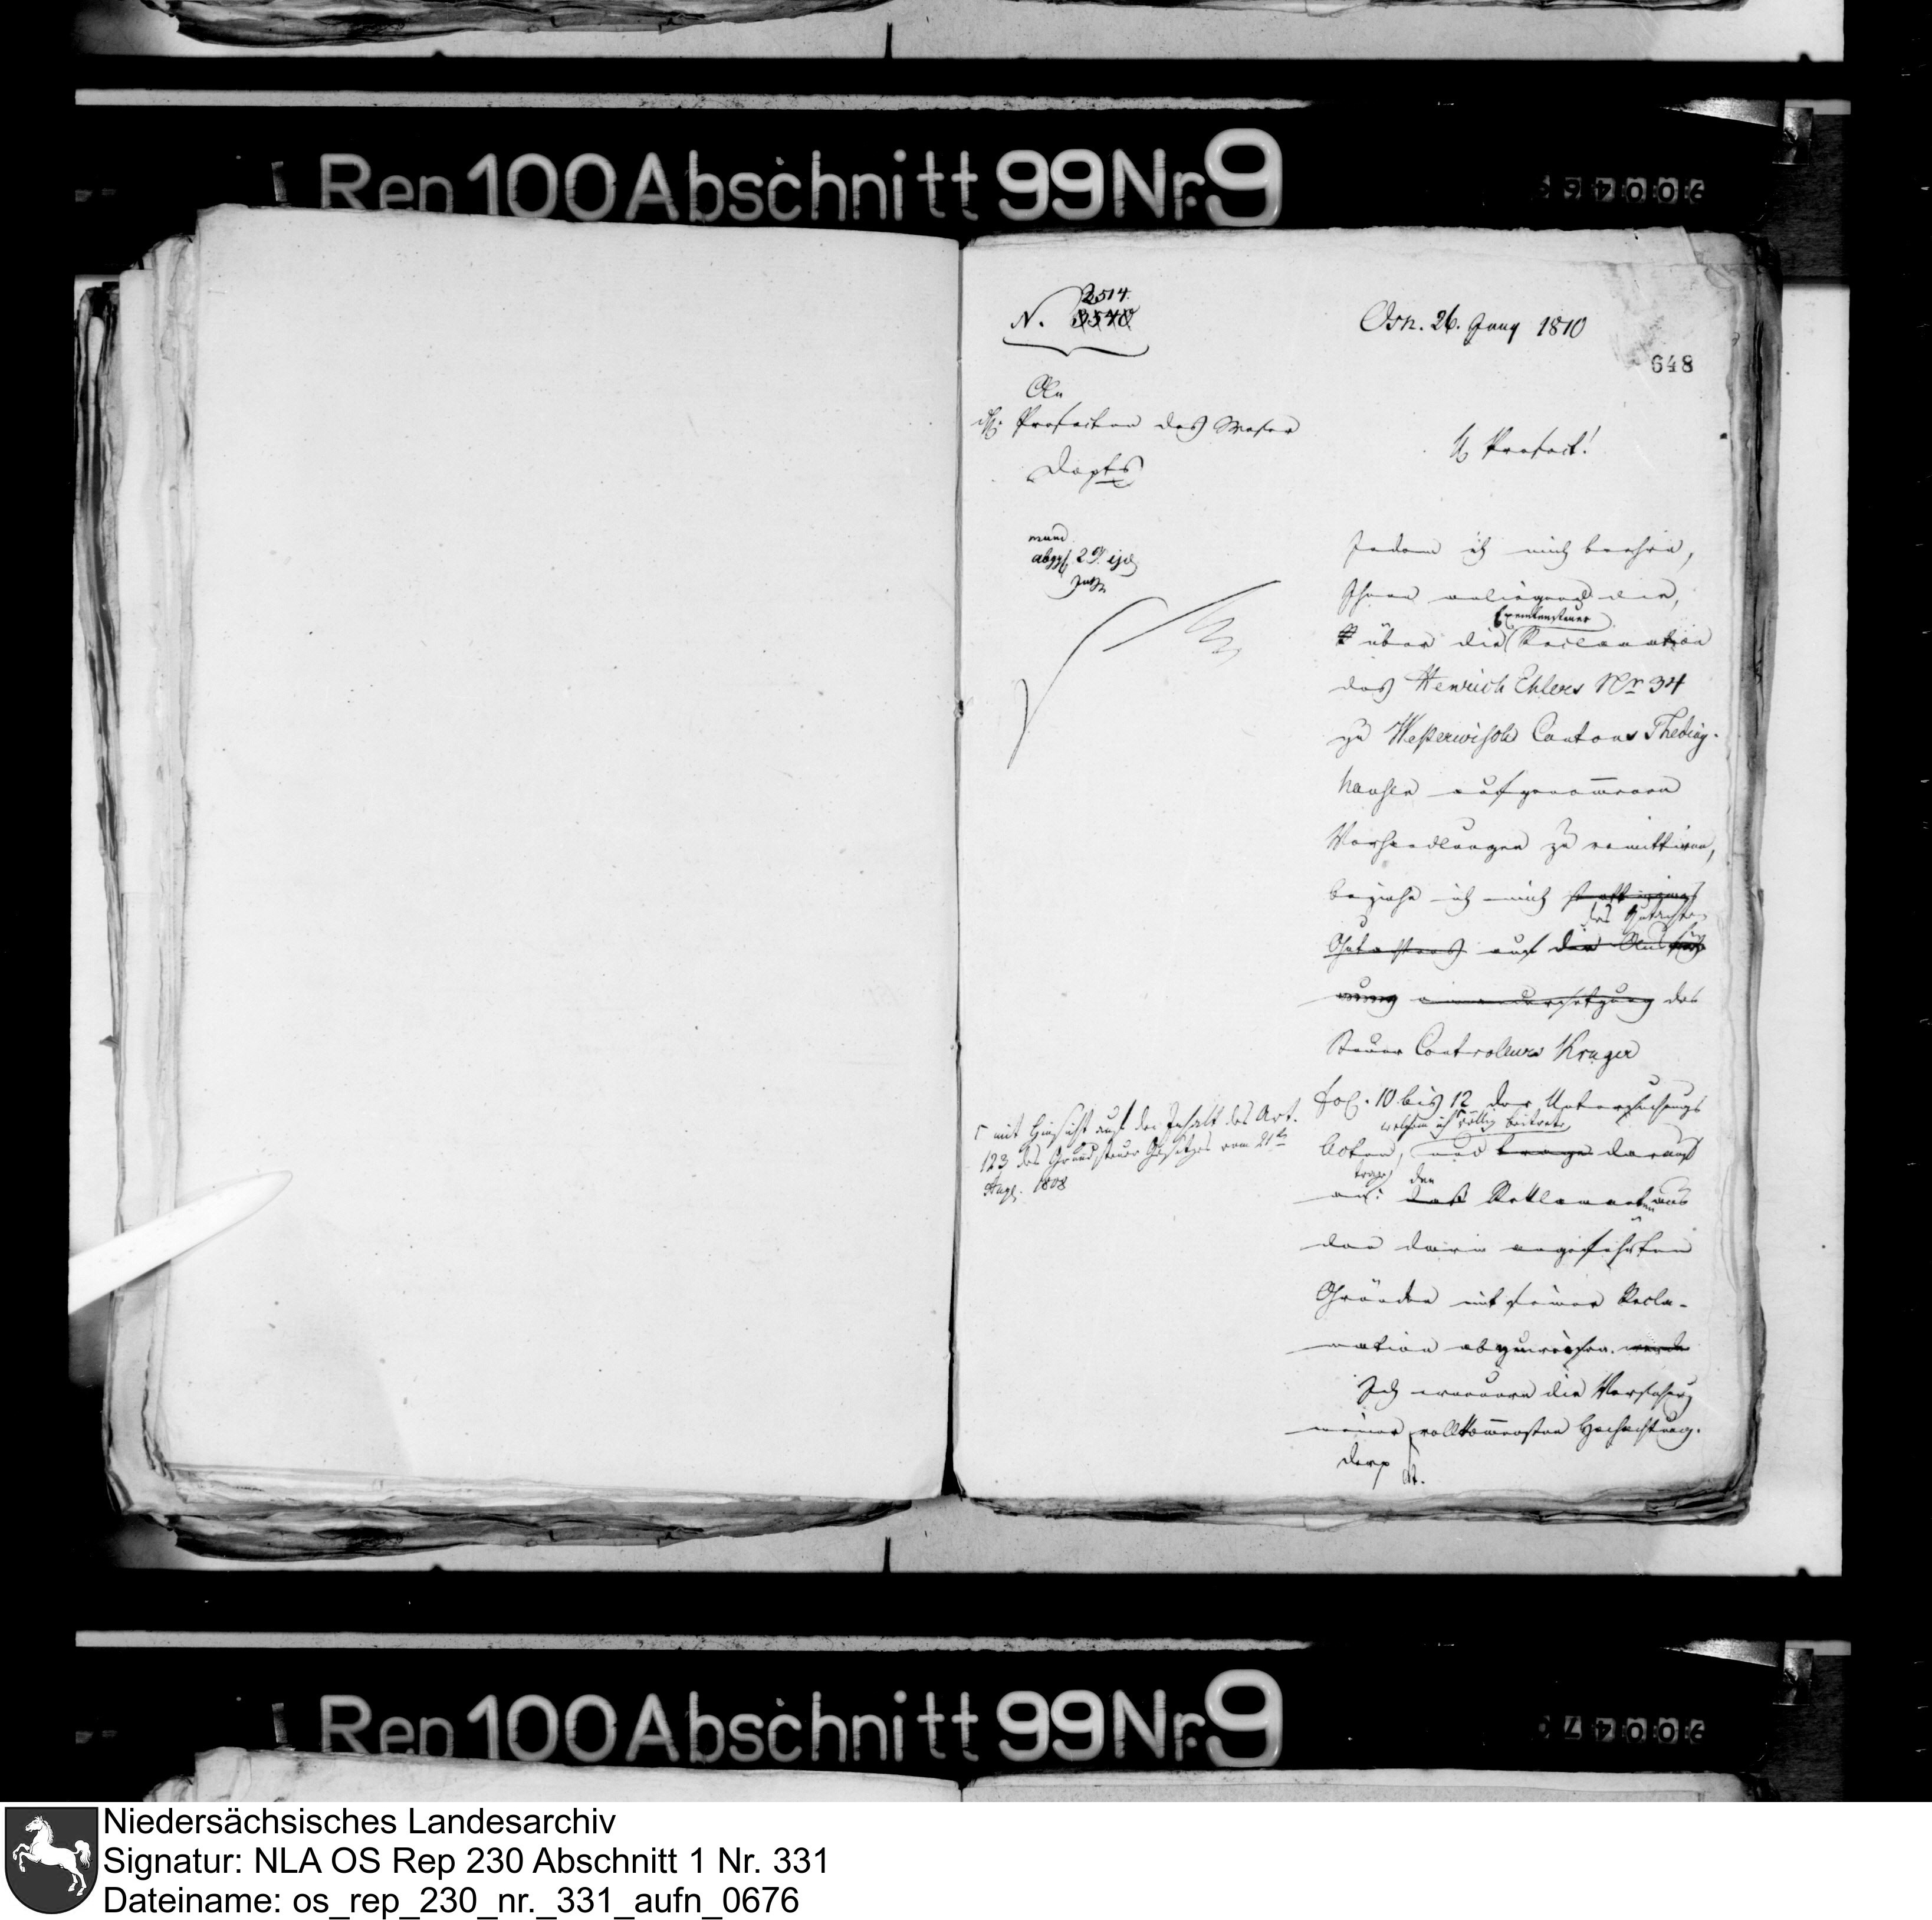 Rep 100 Abschnitt 99 Nr. 9
2514.
N. 3540
Osn. 26. Juny 1810
648
An
H. Prefecten des Weser
Depts
H Prefect!
mund.
abggf. 29. ej.
Indem ich mich beehre,
Ihnen anliegend die,
Exemtensteuer
über die Reclamation
des Henrich Ehlers Nr 34
zu Westerwisch Cantons Theding-
hausen aufgenommenen
Verhandlungen zu remittiren,
beziehe ich mich statt eignes
das Gutachten
Gutachtens auf die Ausfüh
rung des
Steuer Controleurs Kruger
Fol. 10 bis 12 der Untersuchungs
welchem ich völlig beitrete,
Acten, und trage darauf
trage den
an: daß Reklamanten aus
den darin angeführten
Gründen mit seiner Recla-
mation abzuweisen. werde
Ich erneuere die Versicherung
meiner vollkommensten Hochachtung.
mit Hinsicht auf den Inhalt des Art.
123 des Grundsteuer Gesetzes vom 21ten
Aug. 1808
Rep 100 Abschnitt 99 Nr. 9
Niedersächsisches Landesarchiv
Signatur: NLA OS Rep 230 Abschnitt 1 Nr. 331
Dateiname: os_rep_230_nr._331_aufn_0676